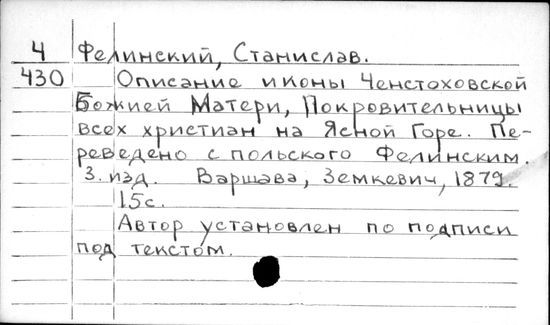 4 Фелинский, Станислав.
430 Описание иконы Ченстоховской
Божией Матери, Покровительницы
всех христиан на Ясной Горе. Пе-
реведено с польского Фелинским.
3. изд. Варшава, Земкевич, 1879.
15с.
Автор установлен по подписи
под текстом.